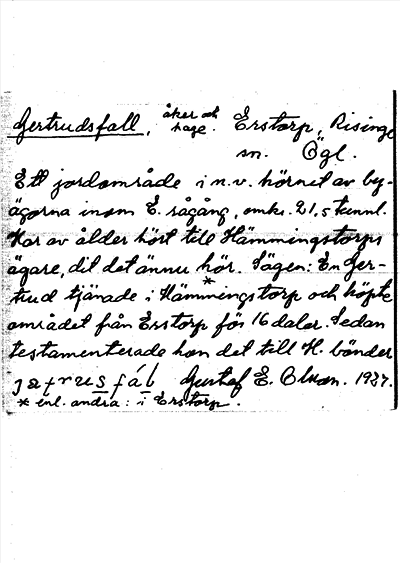 Gertrudsfall, åker och hage. Erstorp, Risinge
sn. Ögl.
Ett jordområde i n.v. hörnet av by-
ägorna inom E. rågång, omkr. 21,5 tunnl.
Har av ålder hört till Hämmingstorps
ägare, dit det ännu hör. Sägen: En Ger-
trud tjänade i Hämmingstorp * och köpte
området från Erstorp för 16 daler. Sedan
testamenterade hon det till H. bönder
Gustaf E. Olsson. 1927.
* enl. andra: i Erstorp.